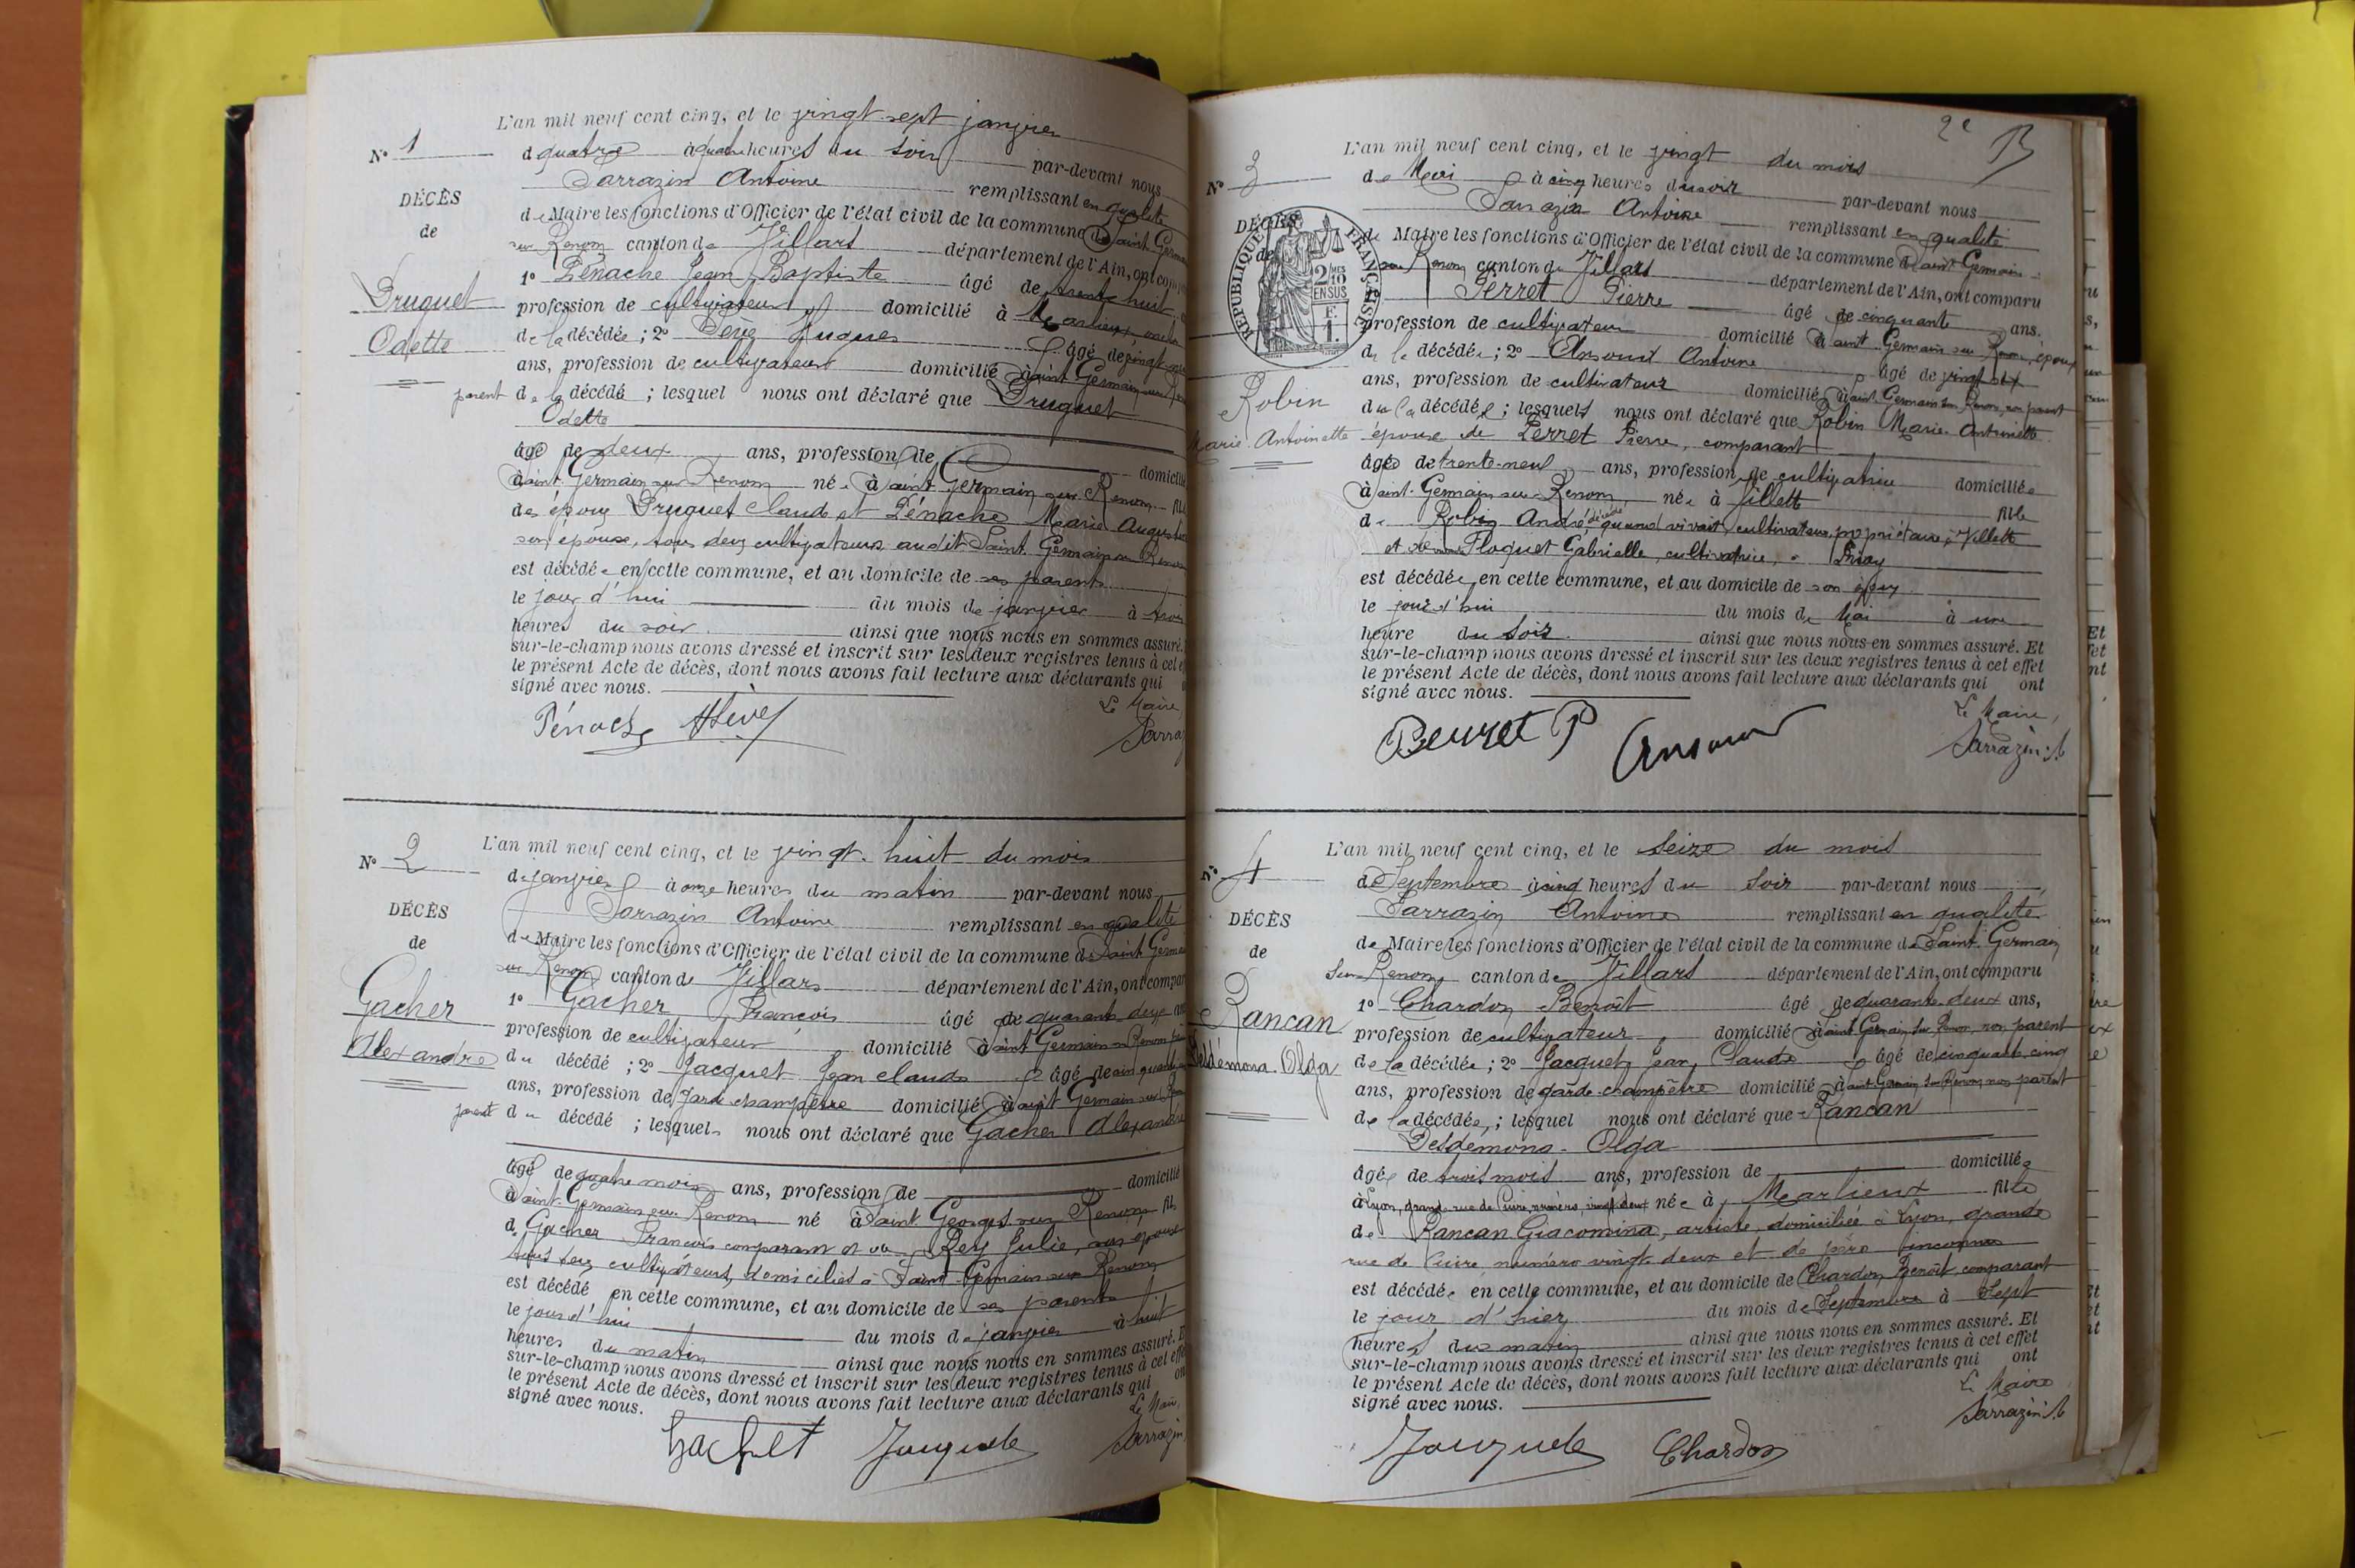 L'an mil neuf cent cinq, et le vingt-sept janvier
N° 1
à quatre heures du soir par-devant nous
Sarrazin Antoine remplissant en qualité
DÉCÈS
de Maire les fonctions d'Officier de l'état civil de la commune de Saint Germ
de
sur Renom canton de Villars département de l'Ain, ont comp
1° Pénache Jean Baptiste âgé de trente huit
Druguet
Odette
profession de cultivateur domicilié à Marlieux, oncle
de la décédée ; 2° Sève Hugues âgé de vingt
ans, profession de cultivateur domicilié à Saint Germain sur
parent de la décédé ; lesquel nous ont déclaré que Druguet
Odette
âgé de deux ans, profession de domicilié
à Saint Germain sur Renom née à Saint Germain sur Renom fille
des époux Druguet Claude et Pénache Marie August
son épouse, tous deux cultivateurs audit Saint Germain sur Renom
est décédée en cette commune, et au domicile de ses parents
le jour d'hui du mois de janvier à trois
heures du soir ainsi que nous nous en sommes assuré.
sur-le-champ nous avons dressé et inscrit sur les deux registres tenus à cet e
le présent Acte de décès, dont nous avons fait lecture aux déclarants qui
signé avec nous.
Le Maire,
Pénache HSève
Sarra
L'an mil neuf cent cinq, et le vingt-huit du mois
N° 2
de janvier à onze heures du matin par-devant nous
Sarrazin Antoine remplissant en qualité
DÉCÈS
de Maire les fonctions d'Officier de l'état civil de la commune de Saint Germa
de
sur Renom canton de Villars département de l'Ain, ont compar
1° Gacher François âgé de quarante deux an
Gacher
Alexandre
profession de cultivateur domicilié à Saint Germain sur Renom
du décédé ; 2° Jacquet Jean Claude âgé de
ans, profession de garde champêtre domicilié à Saint Germain sur
parent du décédé ; lesquels nous ont déclaré que Gacher Alexandre
âgé de quatre mois ans, profession de domicilié
à Saint-Germain sur Renom né à Saint Georges sur Renom fils
de Gacher François comparant et de Rey Julie, son épouse
tous deux cultivateurs, domiciliés à Saint Germain sur Renom
est décédé en cette commune, et au domicile de ses parents
le jour d'hui du mois de janvier à huit
heures du matin ainsi que nous nous en sommes assuré. E
sur-le-champ nous avons dressé et inscrit sur les deux registres tenus à cet effe
le présent Acte de décès, dont nous avons fait lecture aux déclarants qui on
signé avec nous.
Le Mair
Gachet Jacquet
Sarrazin
2e
L'an mil neuf cent cinq, et le vingt du mois
N° 3
de Mai à cinq heures du soir par-devant nous
Sarrazin Antoine remplissant en qualité
DÉCÈS
de Maire les fonctions d'Officier de l'état civil de la commune de Saint Germain
de
RÉPUBLIQUE FRANÇAISE
2 MES 10 EN SUS
F. 1.
sur Renom canton de Villars département de l'Ain, ont comparu
Perret Pierre âgé de cinquante ans,
profession de cultivateur domicilié à Saint Germain sur Renom, époux
de la décédée ; 2° Ansoud Antoine âgé de vingt six
Robin
Marie Antoinette
ans, profession de cultivateur domicilié à Saint Germain sur Renom, non parent
de la décédée ; lesquels nous ont déclaré que Robin Marie Antoinette
épouse de Perret Pierre, comparant
âgée de trente-neuf ans, profession de cultivatrice domiciliée
à Saint-Germain sur Renom, née à Villette fille
de Robin André décédé quand vivait cultivateur propriétaire à Villette
et de Floquet Gabrielle, cultivatrice, à Priay
est décédée en cette commune, et au domicile de son époux
le jour d'hui du mois de Mai à une
heure du soir ainsi que nous nous en sommes assuré. Et
sur-le-champ nous avons dressé et inscrit sur les deux registres tenus à cet effet
le présent Acte de décès, dont nous avons fait lecture aux déclarants qui ont
signé avec nous.
Le Maire,
Perret P Ansoud
Sarrazin A
L'an mil neuf cent cinq, et le seize du mois
N° 4
de Septembre à cinq heures du soir par-devant nous
Sarrazin Antoine remplissant en qualité
DÉCÈS
de Maire les fonctions d'Officier de l'état civil de la commune de Saint Germain
de
sur Renom canton de Villars département de l'Ain, ont comparu
1° Chardon Benoît âgé de quarante-deux ans,
Rancan
Desdémona Olga
profession de cultivateur domicilié à Saint Germain sur Renom, non parent
de la décédée ; 2° Jacquet Jean Claude âgé de cinquante cinq
ans, profession de garde-champêtre domicilié à Saint Germain sur Renom non parent
de la décédée, ; lesquel nous ont déclaré que Rancan
Desdémona-Olga
âgée de trois mois ans, profession de domiciliée
à Lyon, grande rue de Cuire, numéro vingt-deux née à Marlieux fille
de Rancan Giacomina, artiste, domiciliée à Lyon, grande
rue de Cuire, numéro vingt-deux et de père inconnu
est décédée en cette commune, et au domicile de Chardon Benoît, comparant
le jour d'hier du mois de Septembre à Sept
heures du matin ainsi que nous nous en sommes assuré. Et
sur-le-champ nous avons dressé et inscrit sur les deux registres tenus à cet effet
le présent Acte de décès, dont nous avons fait lecture aux déclarants qui ont
signé avec nous.
Le Maire
Jacquet Chardon
Sarrazin A